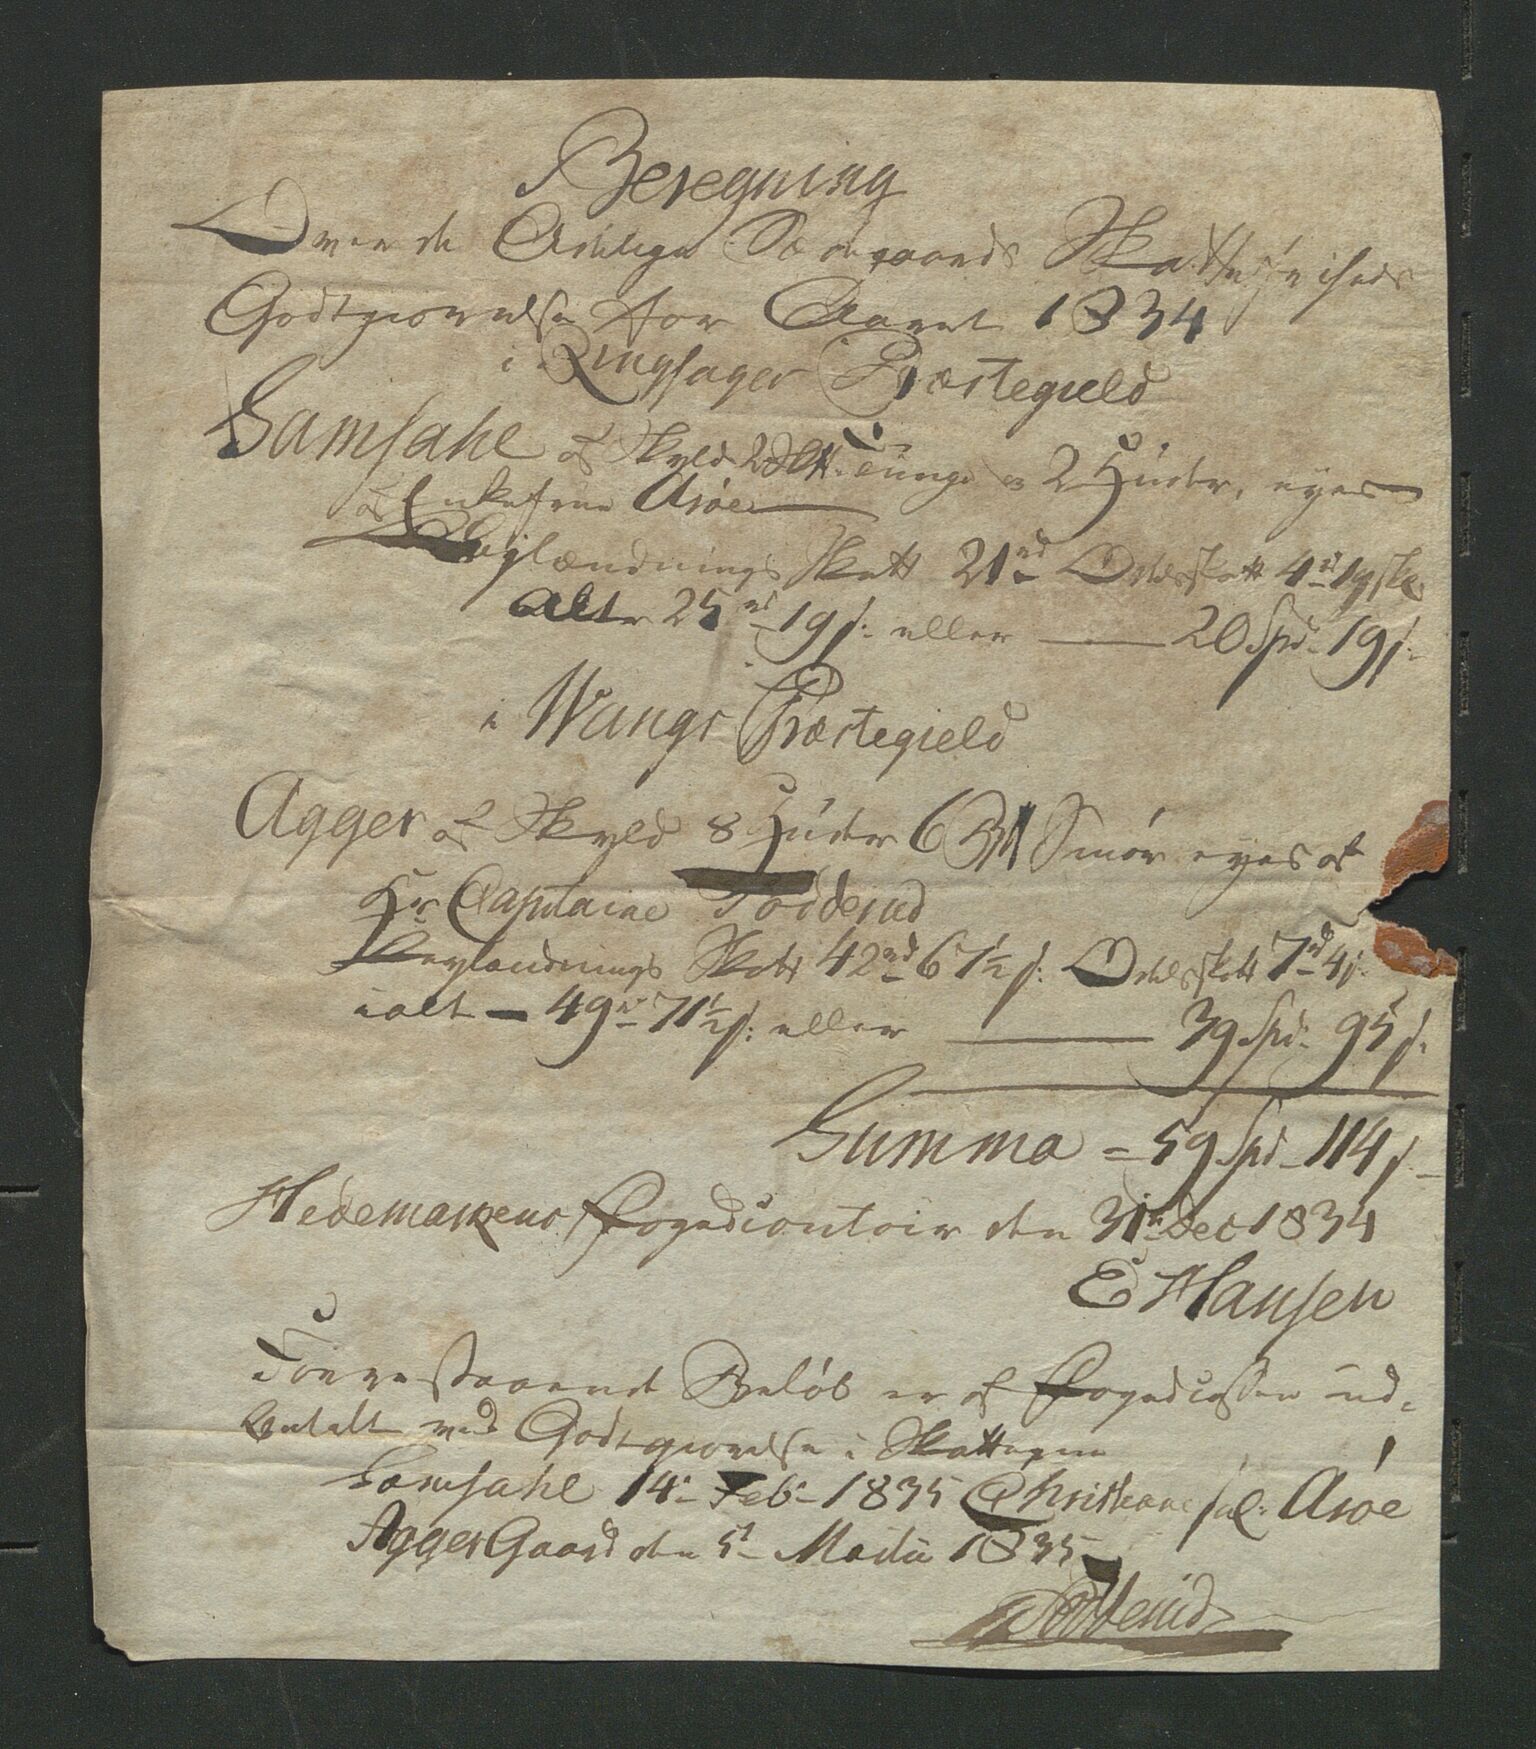 Beregning
Over de Adelige Sædegaards Skattefriheds
Godtgiørelse for Aaret 1834
i Ringsager Præstegield
Samsahl af Skyld 2 Skt Tunge og 2 Huder, eyes
af Enkefrue Arøe
Leylændnings Skatt 21 rd Odelsskatt 4 rd 19 sk
Alt 25 rd 19 s: eller — 20 Spd 19 s:
i Wangs Præstegield
Agger af Skyld 8 Huder 6 Bpd Smør eyes af
Hr Capitaine Todderud
Leylændnings Skatt 42 rd 67½ s: Odelsskatt 7 rd 4 s:
ialt — 49 rd 71½ s: eller — 39 Spd 95 s:
Summa = 59 Spd 114 s
Hedemarkens Fogedcontoir den 31te Dec 1834
E Hansen
Forrestaaende Beløb er af Fogedcassen ud-
betalt ved Godtgiørelse i Skatterne
Samsahl 14 Feb 1835 Christiane sal: Arøe
Agger Gaard den 5t Martii 1835
Todderud